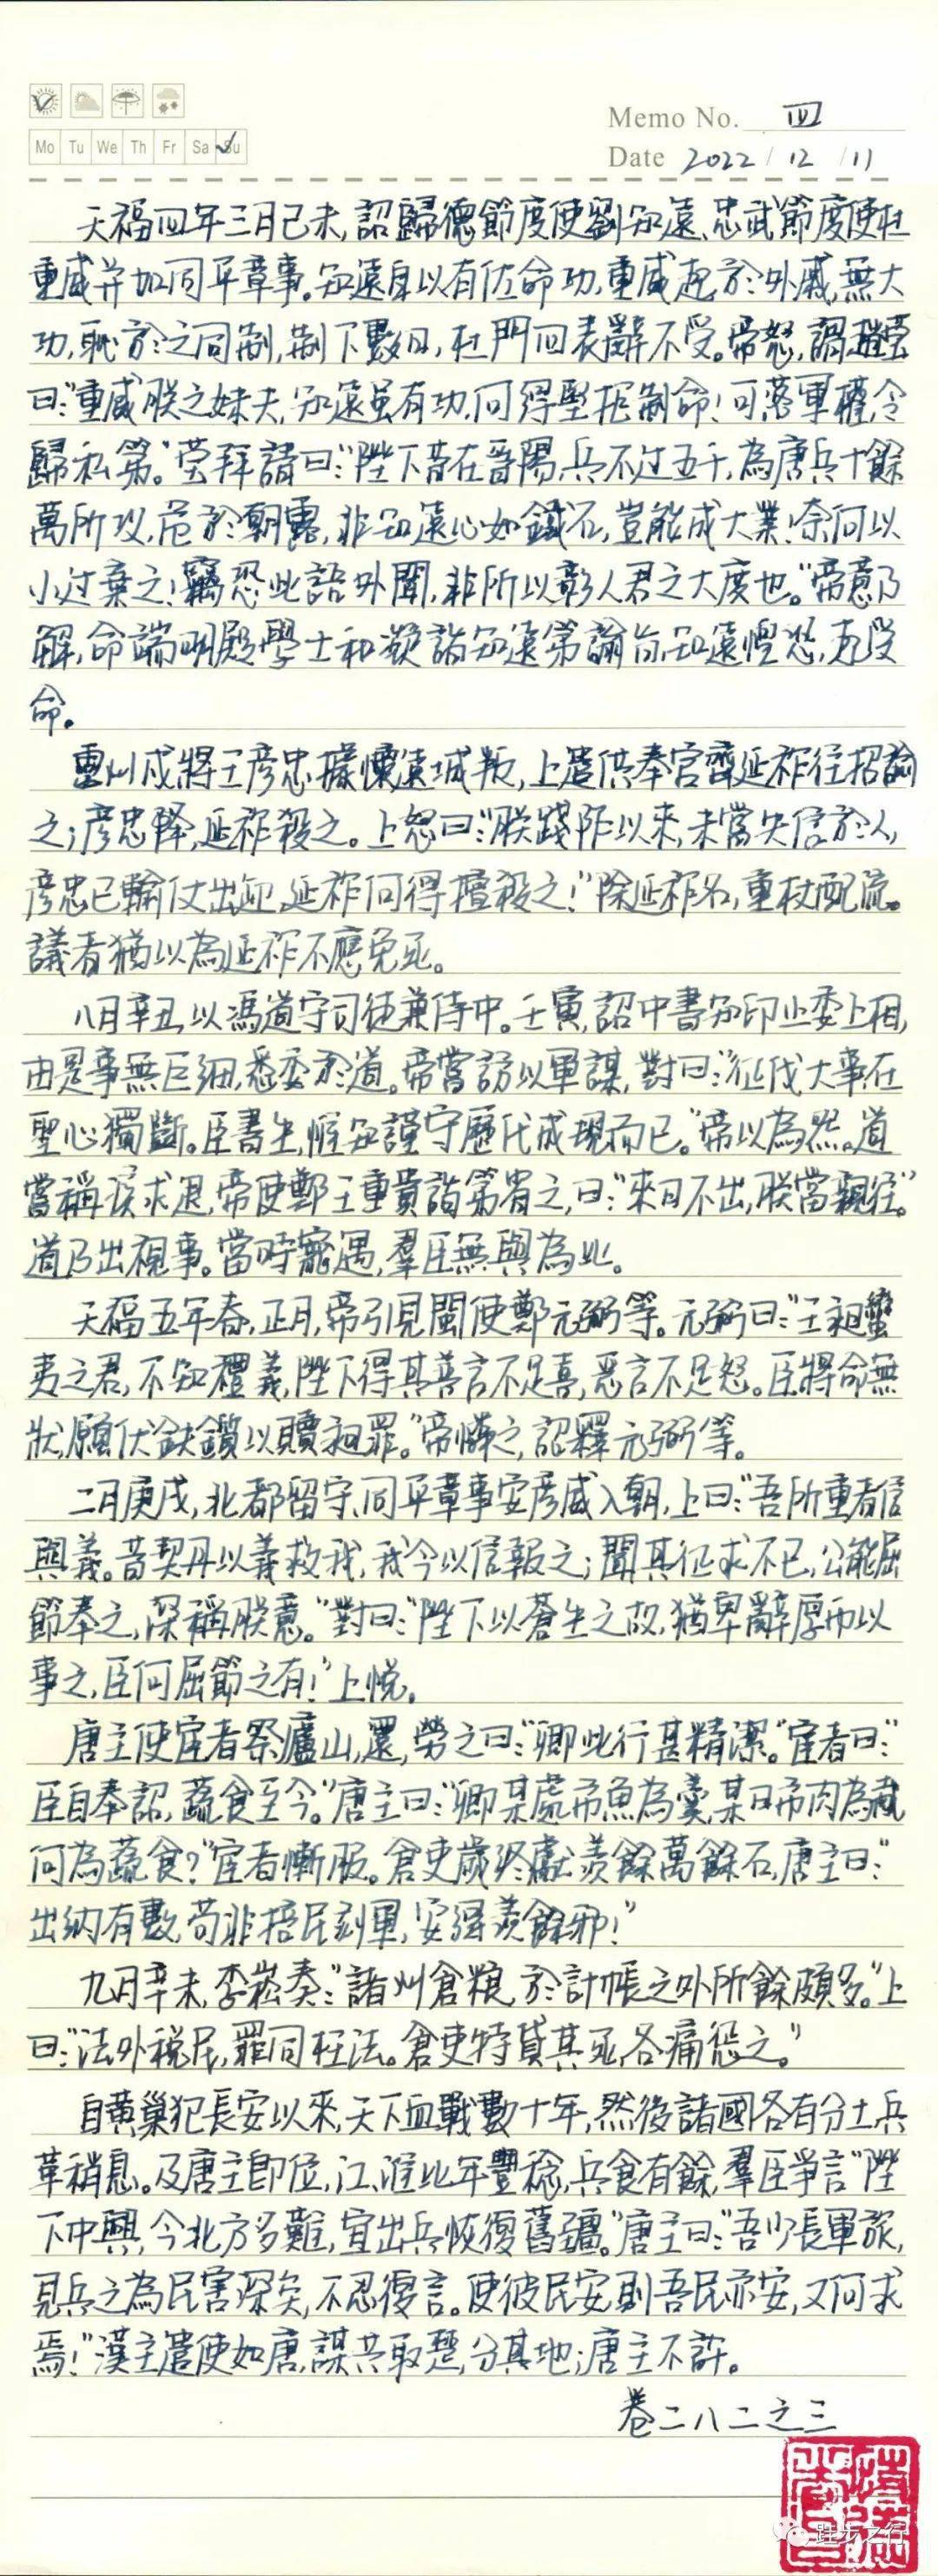 Memo No. 四
Mo Tu We Th Fr Sa Su
Date 2022 / 12 / 11
天福四年三月己未,詔歸德節度使劉知遠、忠武節度使杜
重威并加同平章事。知遠自以有佐命功,重威起於外戚,無大
功,恥於之同制,制下數日,杜門四表辭不受。帝怒,謂趙瑩
曰:“重威朕之妹夫,知遠雖有功,何得堅拒制命!可落軍權,令
歸私第。”瑩拜請曰:“陛下昔在晉陽,兵不过五千,為唐兵十餘
萬所攻,危於朝露,非知遠心如鐵石,豈能成大業!奈何以
小过棄之!竊恐此語外聞,非所以彰人君之大度也。”帝意乃
解,命端明殿學士和凝詣知遠第諭旨,知遠惶恐,起受
命。
靈州戍將王彥忠據懷遠城叛,上遣供奉官齊延祚往招諭
之;彥忠降,延祚殺之。上怒曰:“朕踐阼以來,未嘗失信於人,
彥忠已輸仗出迎,延祚何得擅殺之!”除延祚名,重杖配流。
議者猶以為延祚不應免死。
八月辛丑,以馮道守司徒兼侍中。壬寅,詔中書知印止委上相,
由是事無巨細,悉委於道。帝嘗訪以軍謀,對曰:“征伐大事,在
聖心獨斷。臣書生,惟知謹守歷代成規而已。”帝以為然。道
嘗稱疾求退,帝使鄭王重貴詣第省之,曰:“來日不出,朕當親往。”
道乃出視事。當時寵遇,羣臣無與為比。
天福五年春,正月,帝引見閩使鄭元弼等。元弼曰:“王昶蠻
夷之君,不知禮義,陛下得其善言不足喜,惡言不足怒。臣將命無
狀,願伏鈇鑕以贖昶罪。”帝憐之,詔釋元弼等。
二月庚戌,北都留守、同平章事安彥威入朝,上曰:“吾所重者信
與義。昔契丹以義救我,我今以信報之;聞其征求不已,公能屈
節奉之,深稱朕意。”對曰:“陛下以蒼生之故,猶卑辭厚幣以
事之,臣何屈節之有!”上悅。
唐主使宦者祭廬山,還,勞之曰:“卿此行甚精潔。”宦者曰:“
臣自奉詔,蔬食至今。”唐主曰:“卿某處市魚為羹,某日市肉為胾,
何為蔬食?”宦者慚服。倉吏歲終獻羨餘萬餘石,唐主曰:“
出納有數,苟非掊民刻軍,安得羨餘邪!”
九月辛未,李崧奏:“諸州倉粮,於計帳之外所餘頗多。”上
曰:“法外税民,罪同枉法。倉吏特貸其死,各痛懲之。”
自黃巢犯長安以來,天下血戰數十年,然後諸國各有分土,兵
革稍息。及唐主即位,江、淮比年豐稔,兵食有餘,羣臣爭言“陛
下中興,今北方多難,宜出兵恢復舊疆。”唐主曰:“吾少長軍旅,
見兵之為民害深矣,不忍復言。使彼民安,則吾民亦安,又何求
焉!”漢主遣使如唐,謀共取楚,分其地;唐主不許。
卷二八二之三
跬步之行